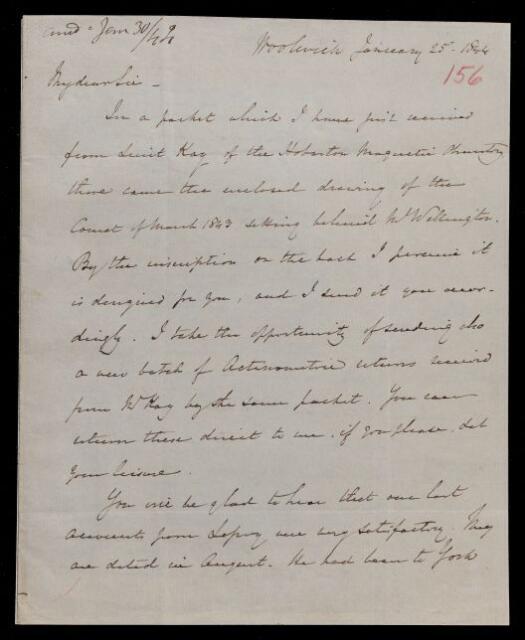 ansd - Jan 30/44
Woolwich January 25 - 1844
156
My dear Sir -
In a packet which I have just received
from Lieut Kay of the Hobarton Magnetic Observatory
there came the enclosed drawing of the
Comet of March 1843 setting behind Mt Wellington.
By the inscription on the back I perceive it
is designed for you, and I send it you accor-
dingly. I take the opportunity of sending also
a new batch of Actinometric returns received
from Mr Kay by the same packet. You can
return these direct to me, if you please, at
your leisure.
You will be glad to hear that our last
accounts from Lefroy are very satisfactory. They
are dated in August. He had been to York